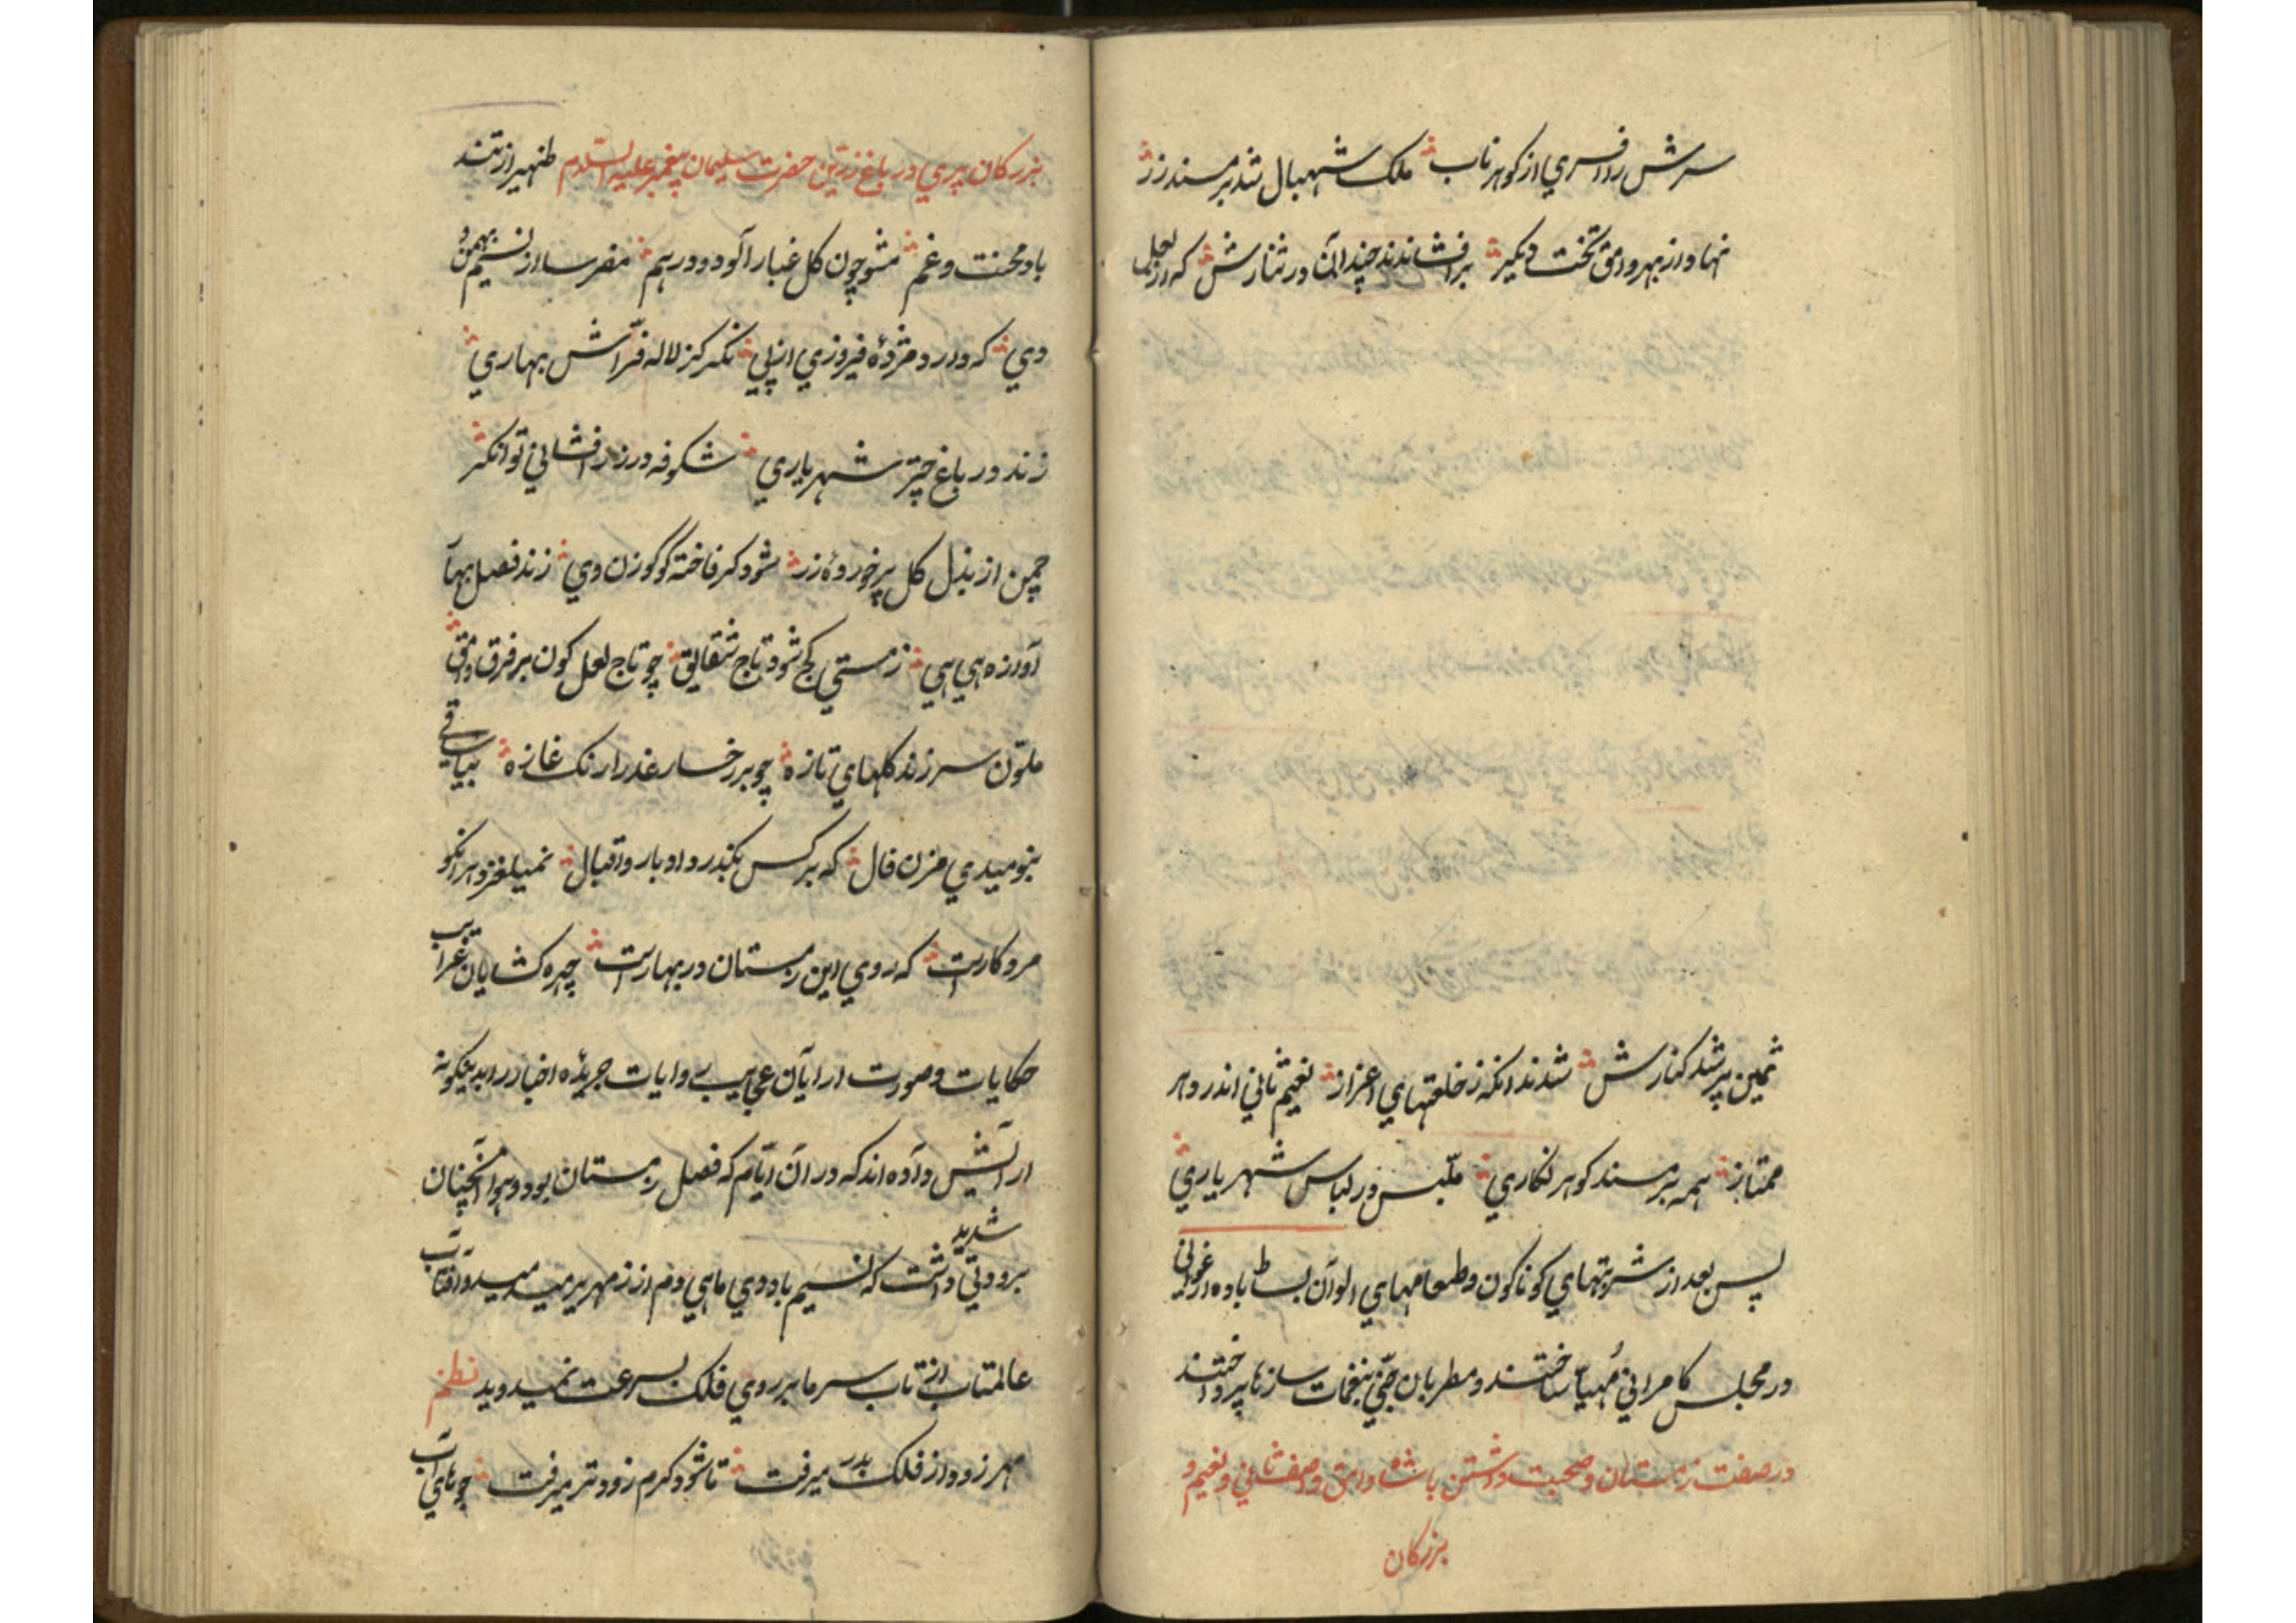 سرش را افسری از کوهر ناب ملک شهبال شد بر مسند زر
نهاد از بهر وامق تخت دیکر برافشاندند چندان در نثارش که از لعل
ثمین پر شد کنارش شدند انکه ز خلعتهای اعزاز نعیم ثانی اندر دهر
ممتاز همه بر مسند کوهر نکاری ملبس در لباس شهریاری
پس بعد از شربتهای کوناکون و طعامهای الوان بساط باده ارغوانی
در مجلس کامرانی مهیا ساختند و مطربان جنی بنغمات سازها پرداختند
در صفت زمستان و صحبت داشتن با شاه وامق و اصف ثانی و نعیم و
بزرکان
بزرکان پری در باغ زرین حضرت سلیمان پیغمبر علیه السلام از تند
باد محنت و غم مشو چون کل غبار آلود و درهم مفرسا از نسیم بهمن و
دی که دارد مژدهٔ فیروزی از پی نکر کز لاله فراش بهاری
زند در باغ چتر شهریاری شکوفه در زرافشانی توانکر
چمن از بذل کل پر خوردهٔ زر شود کر فاخته کوکوزن دی زند فصل بهار
آوازه هی هی ز مستی کج شود تاج شقایق چو تاج لعل کون بر فرق وامق
ملون سر زند کلهای تازه چو بر رخسار عذرا رنک غازه بیا ساقی
بنومیدی مزن فال که بر کس بکذرد ادبار و اقبال نمیلغزد هر انکو
مرد کارست که روی این زمستان در بهارست چهره کشایان غرایب
حکایات و صورت ارایان عجایب روایات جریدهٔ اخبار را بدینکونه
ارایش داده اند که در آن ایام که فصل زمستان بود و هوا آنچنان
برودتی شدید داشت که نسیم باد دی ماهی دم از زمهریر میدمید و آفتاب
عالمتاب از تاب سرما بر روی فلک بسرعت میدوید نظم
مهر زود از فلک بدر میرفت تا شود کرم زودتر میرفت جوهای آب